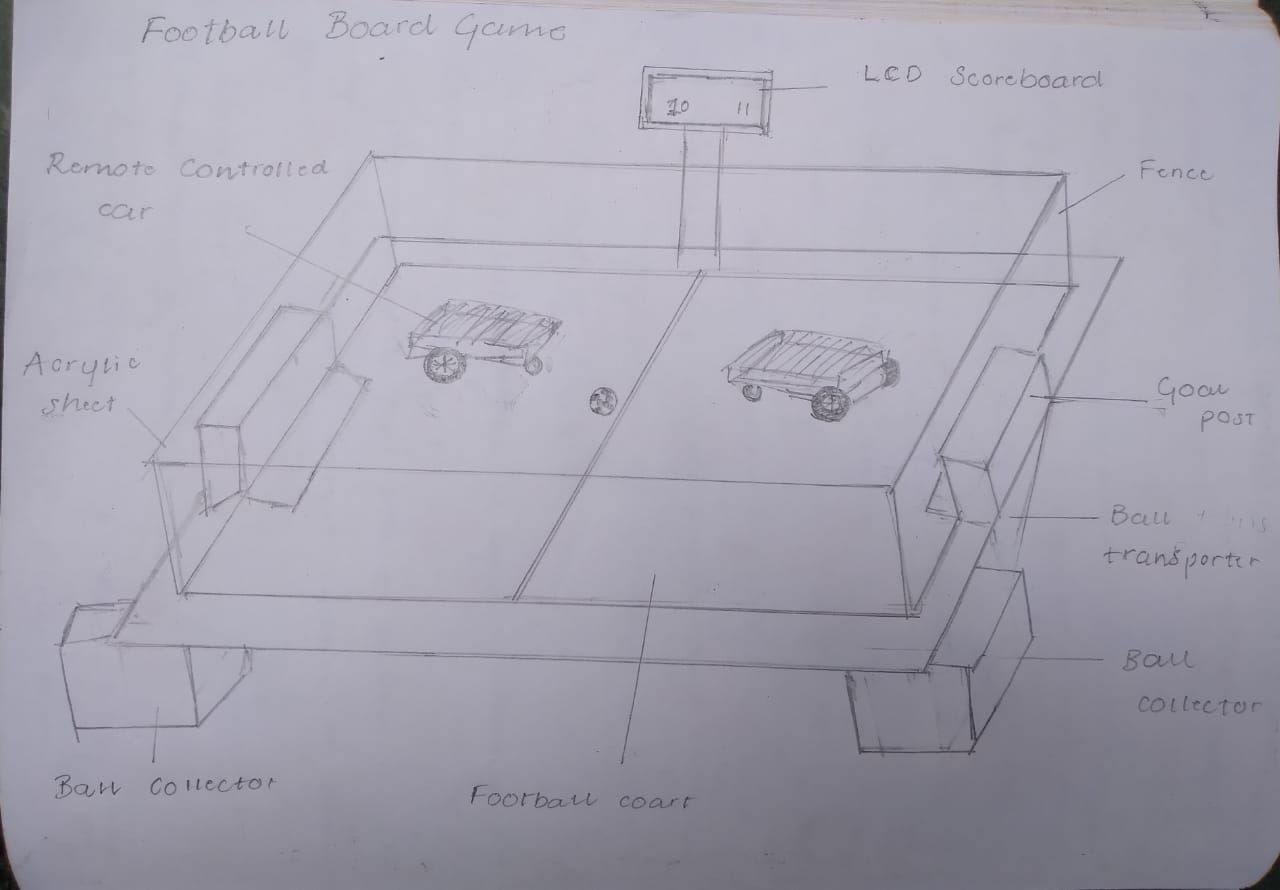 Football Board Game
LCD Scoreboard
10 11
Remote Controlled
car
Fence
Acrylic
sheet
Goal
post
Ball
transporter
Ball
collector
Ball collector
Football coart